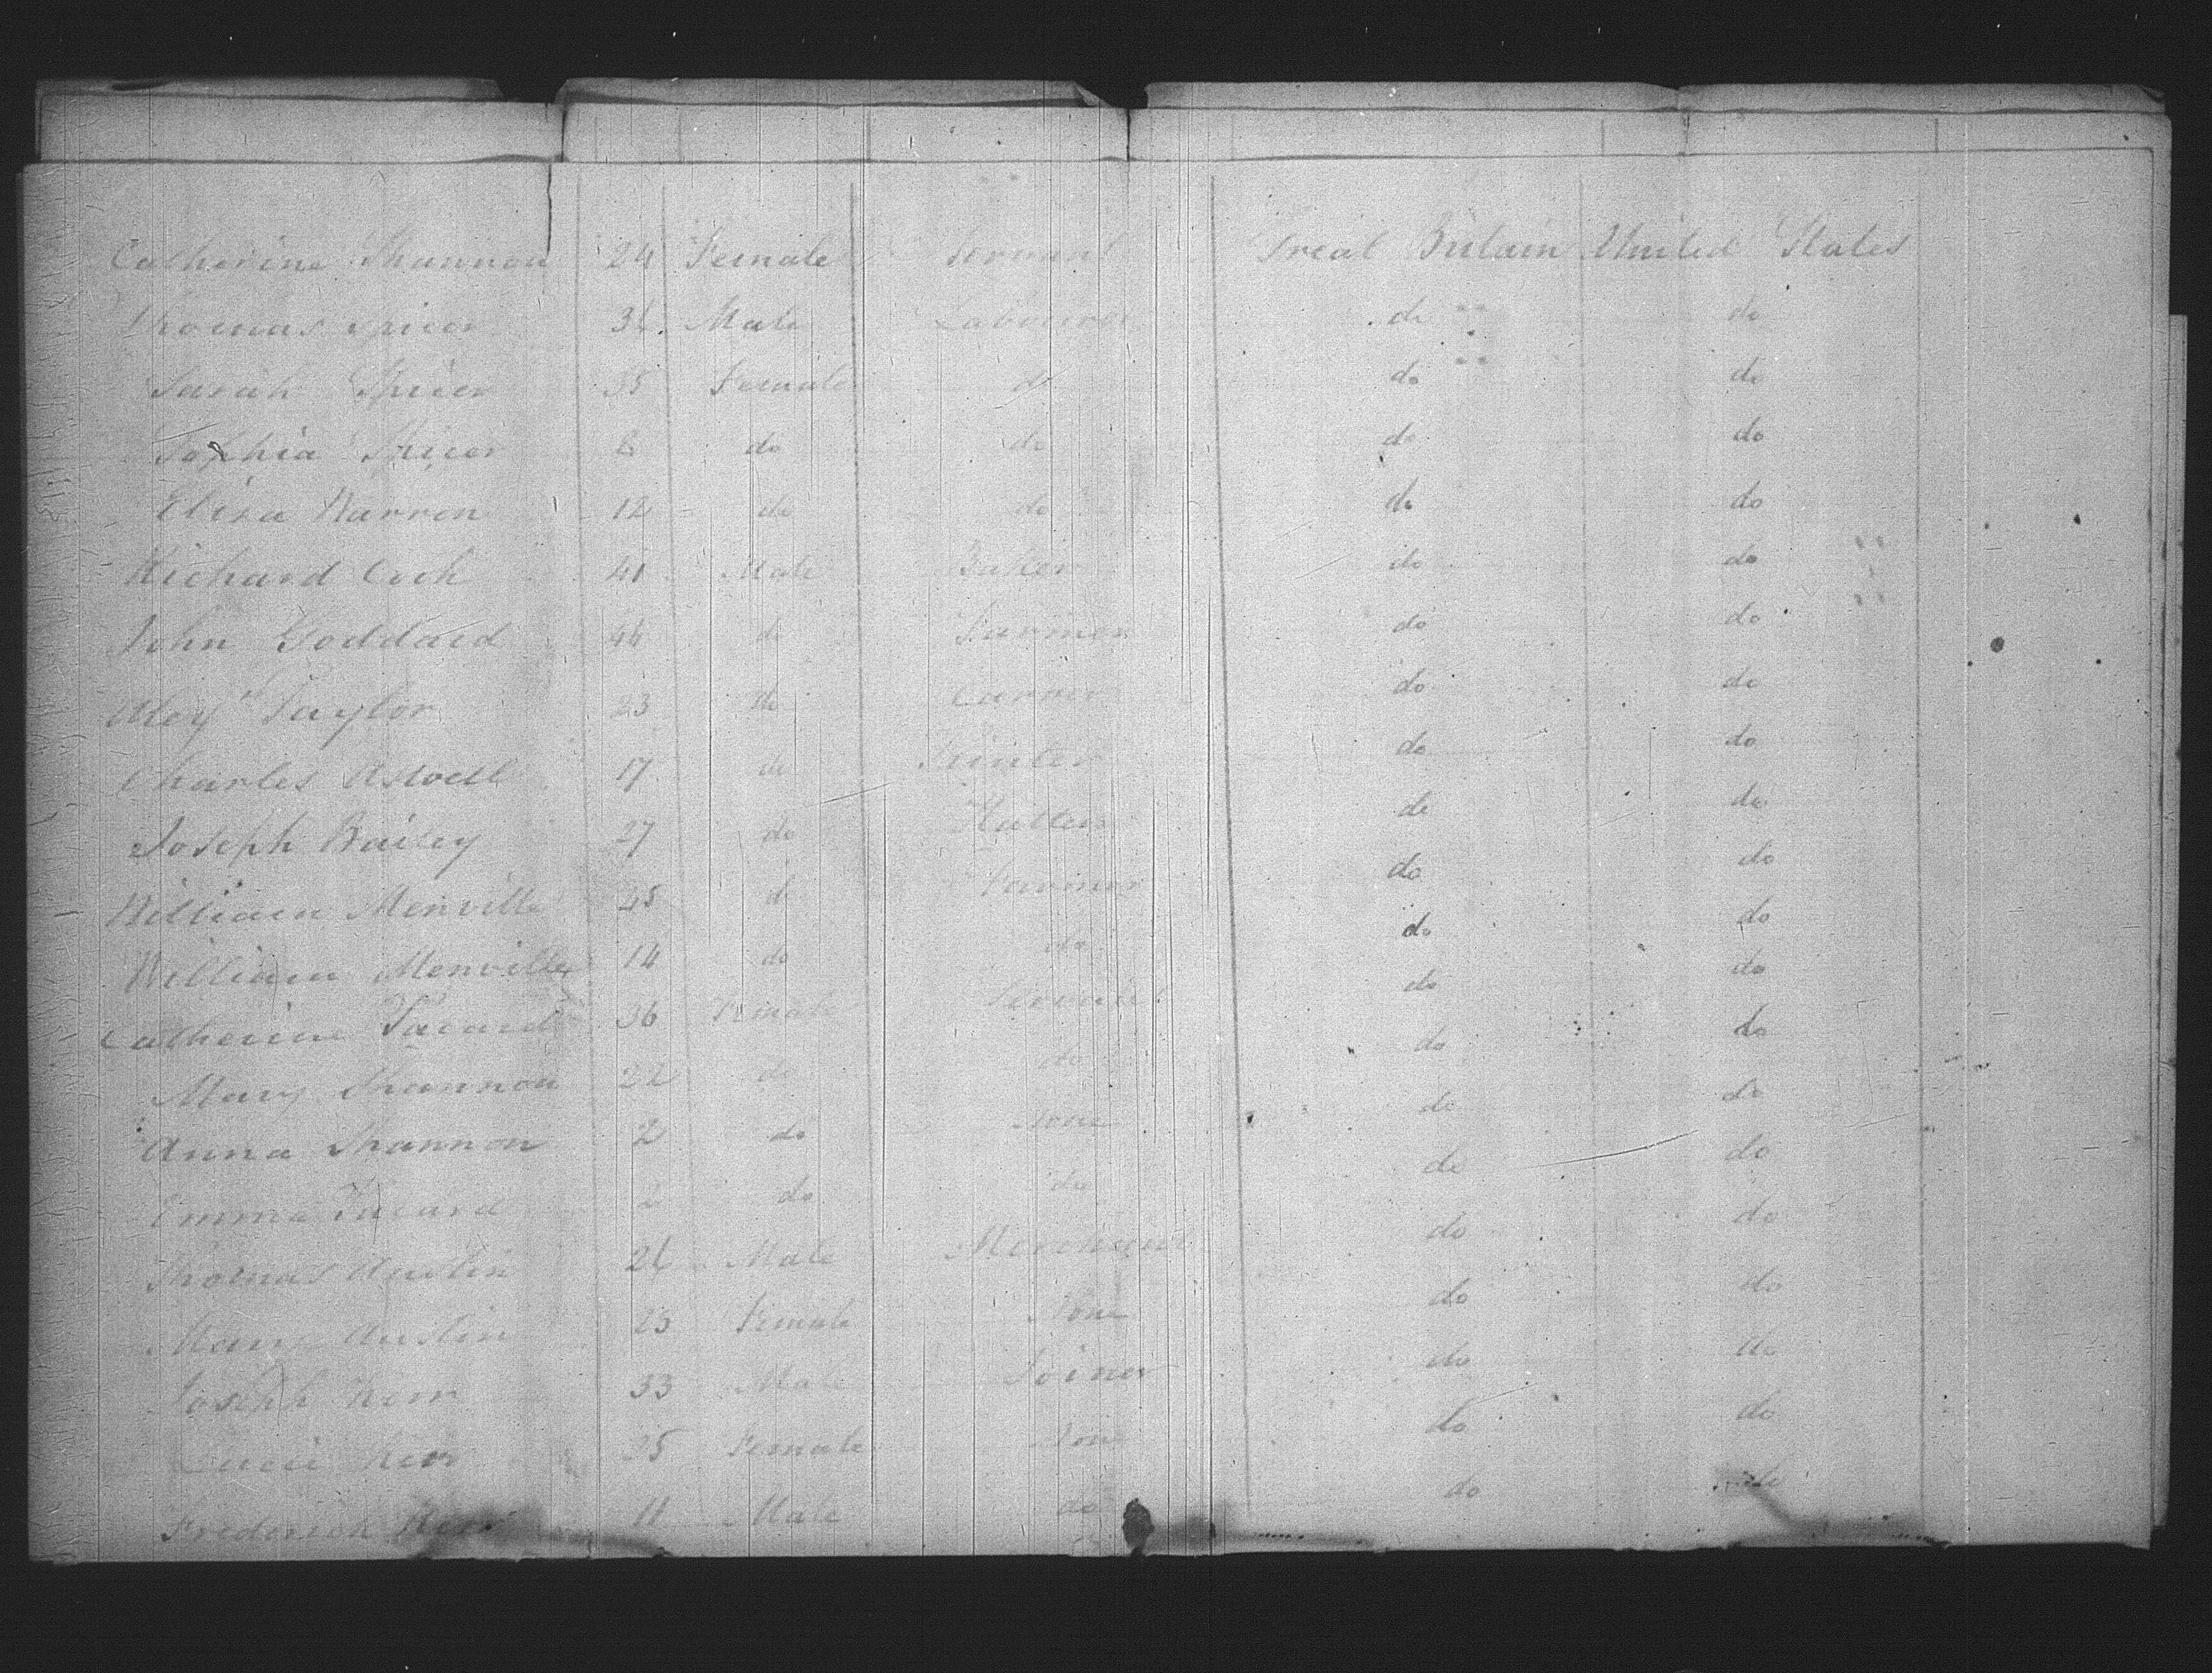 Catherine Shannon 24 Female Servant Great Britain United States
Thomas Spicer 34 Male Labourer do do
Sarah Spicer 35 Female do do do
Sophia Spicer 6 do do do do
Eliza Warren 12 do do do do
Richard Cock 41 Male Baker do do
John Goddard 44 do Farmer do do
Alexr Taylor 23 do Carver do do
Charles 17 do Printer do do
Joseph Bailey 27 do Hatter do do
William Menville 45 do Farmer do do
William Menville 14 do do do do
Catherine 36 Female Servant do do
Mary Shannon 22 do do do do
Anna Shannon 2 do None do do
Emma 2 do do do do
Thomas Austin 26 Male Merchant do do
Mary Austin 23 Female None do do
Joseph Kerr 33 Male Joiner do do
Kerr 35 Female None do do
Frederick Kerr 11 Male do do do